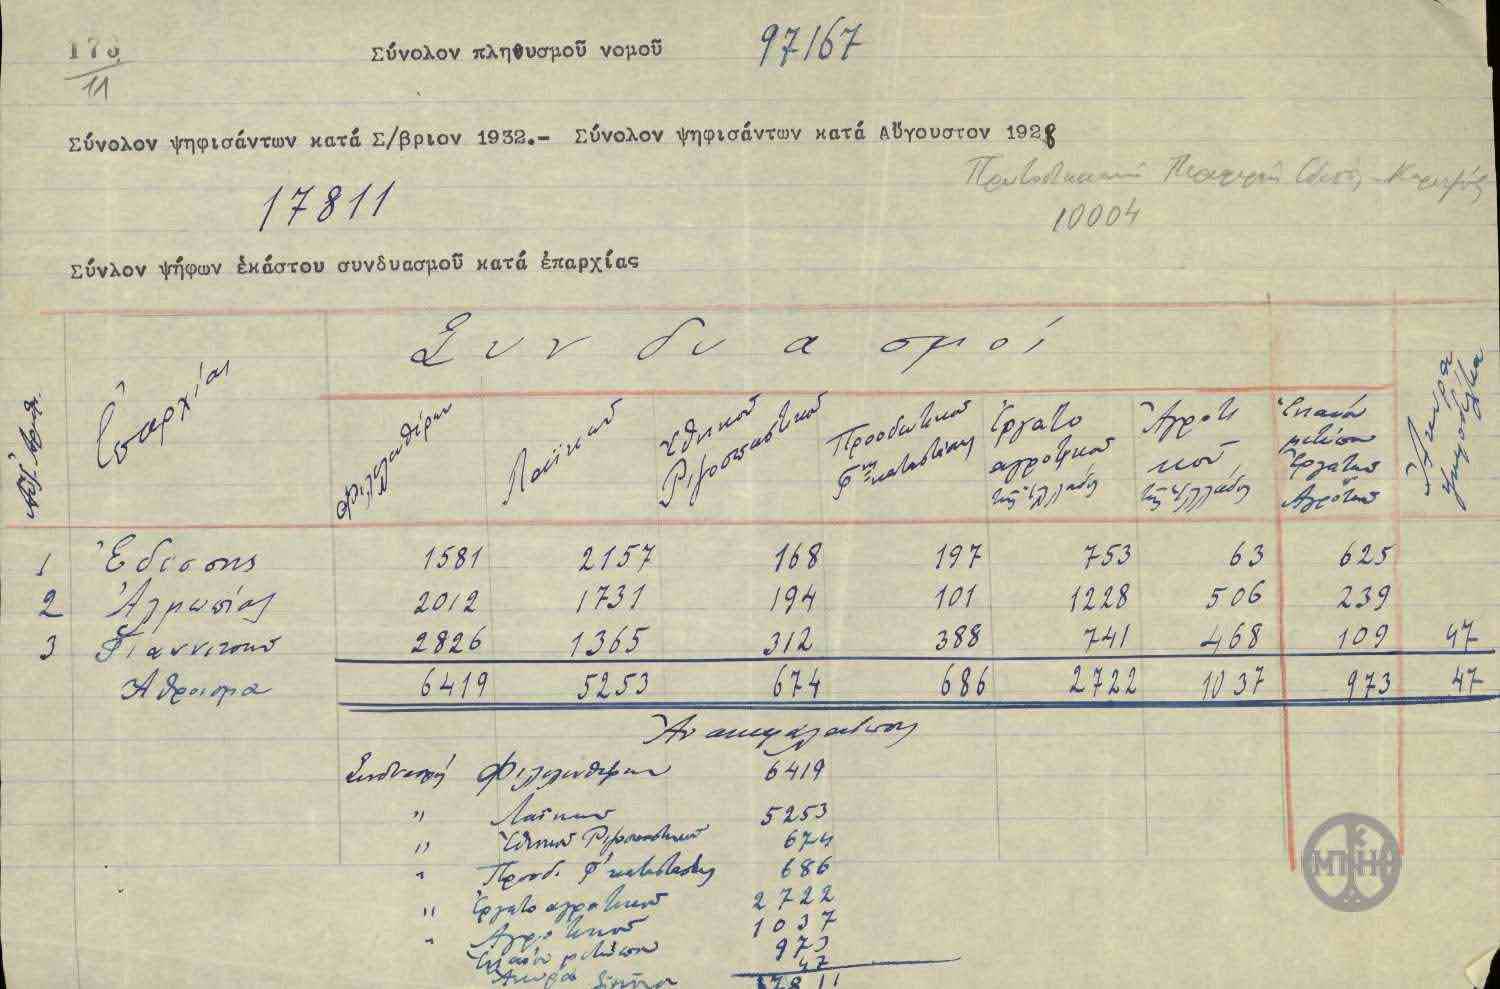 173
11
Σύνολον πληθυσμοῦ νομοῦ 97167
Σύνολον ψηφισάντων κατά Σ/βριον 1932.- Σύνολον ψηφισάντων κατά Αὔγουστον 1928
17811
10004
Σύνλον ψήφων ἑκάστου συνδυασμοῦ κατά ἐπαρχίας
Ἐπαρχίαι
Συνδυασμοί
Φιλελευθέρων
Λαϊκοῦ
Ἐθνικοῦ Ριζοσπαστικοῦ
Προοδευτικοῦ
Ἐργατο αγροτικοῦ τῆς Ἑλλάδος
Ἀγροτικοῦ τῆς Ἑλλάδος
Ἑνιαίου μετώπου Ἐργατῶν Ἀγροτῶν
Ἄκυρα ψηφοδέλτια
1 Ἐδέσσης 1581 2157 168 197 753 63 625
2 Ἀλμωπίας 2012 1731 194 101 1228 506 239
3 Γιαννιτσῶν 2826 1365 312 388 741 468 109 47
Ἄθροισμα 6419 5253 674 686 2722 1037 973 47
Ἀνακεφαλαίωσις
Συνδυασμός Φιλελευθέρων 6419
" Λαϊκοῦ 5253
" Ἐθνικοῦ Ριζοσπαστικοῦ 674
" 686
" Ἐργατο αγροτικοῦ 2722
" Ἀγροτικοῦ 1037
Ἑνιαίου μετώπου 973
Ἄκυρα 47
17811
ΜΠΝΗ